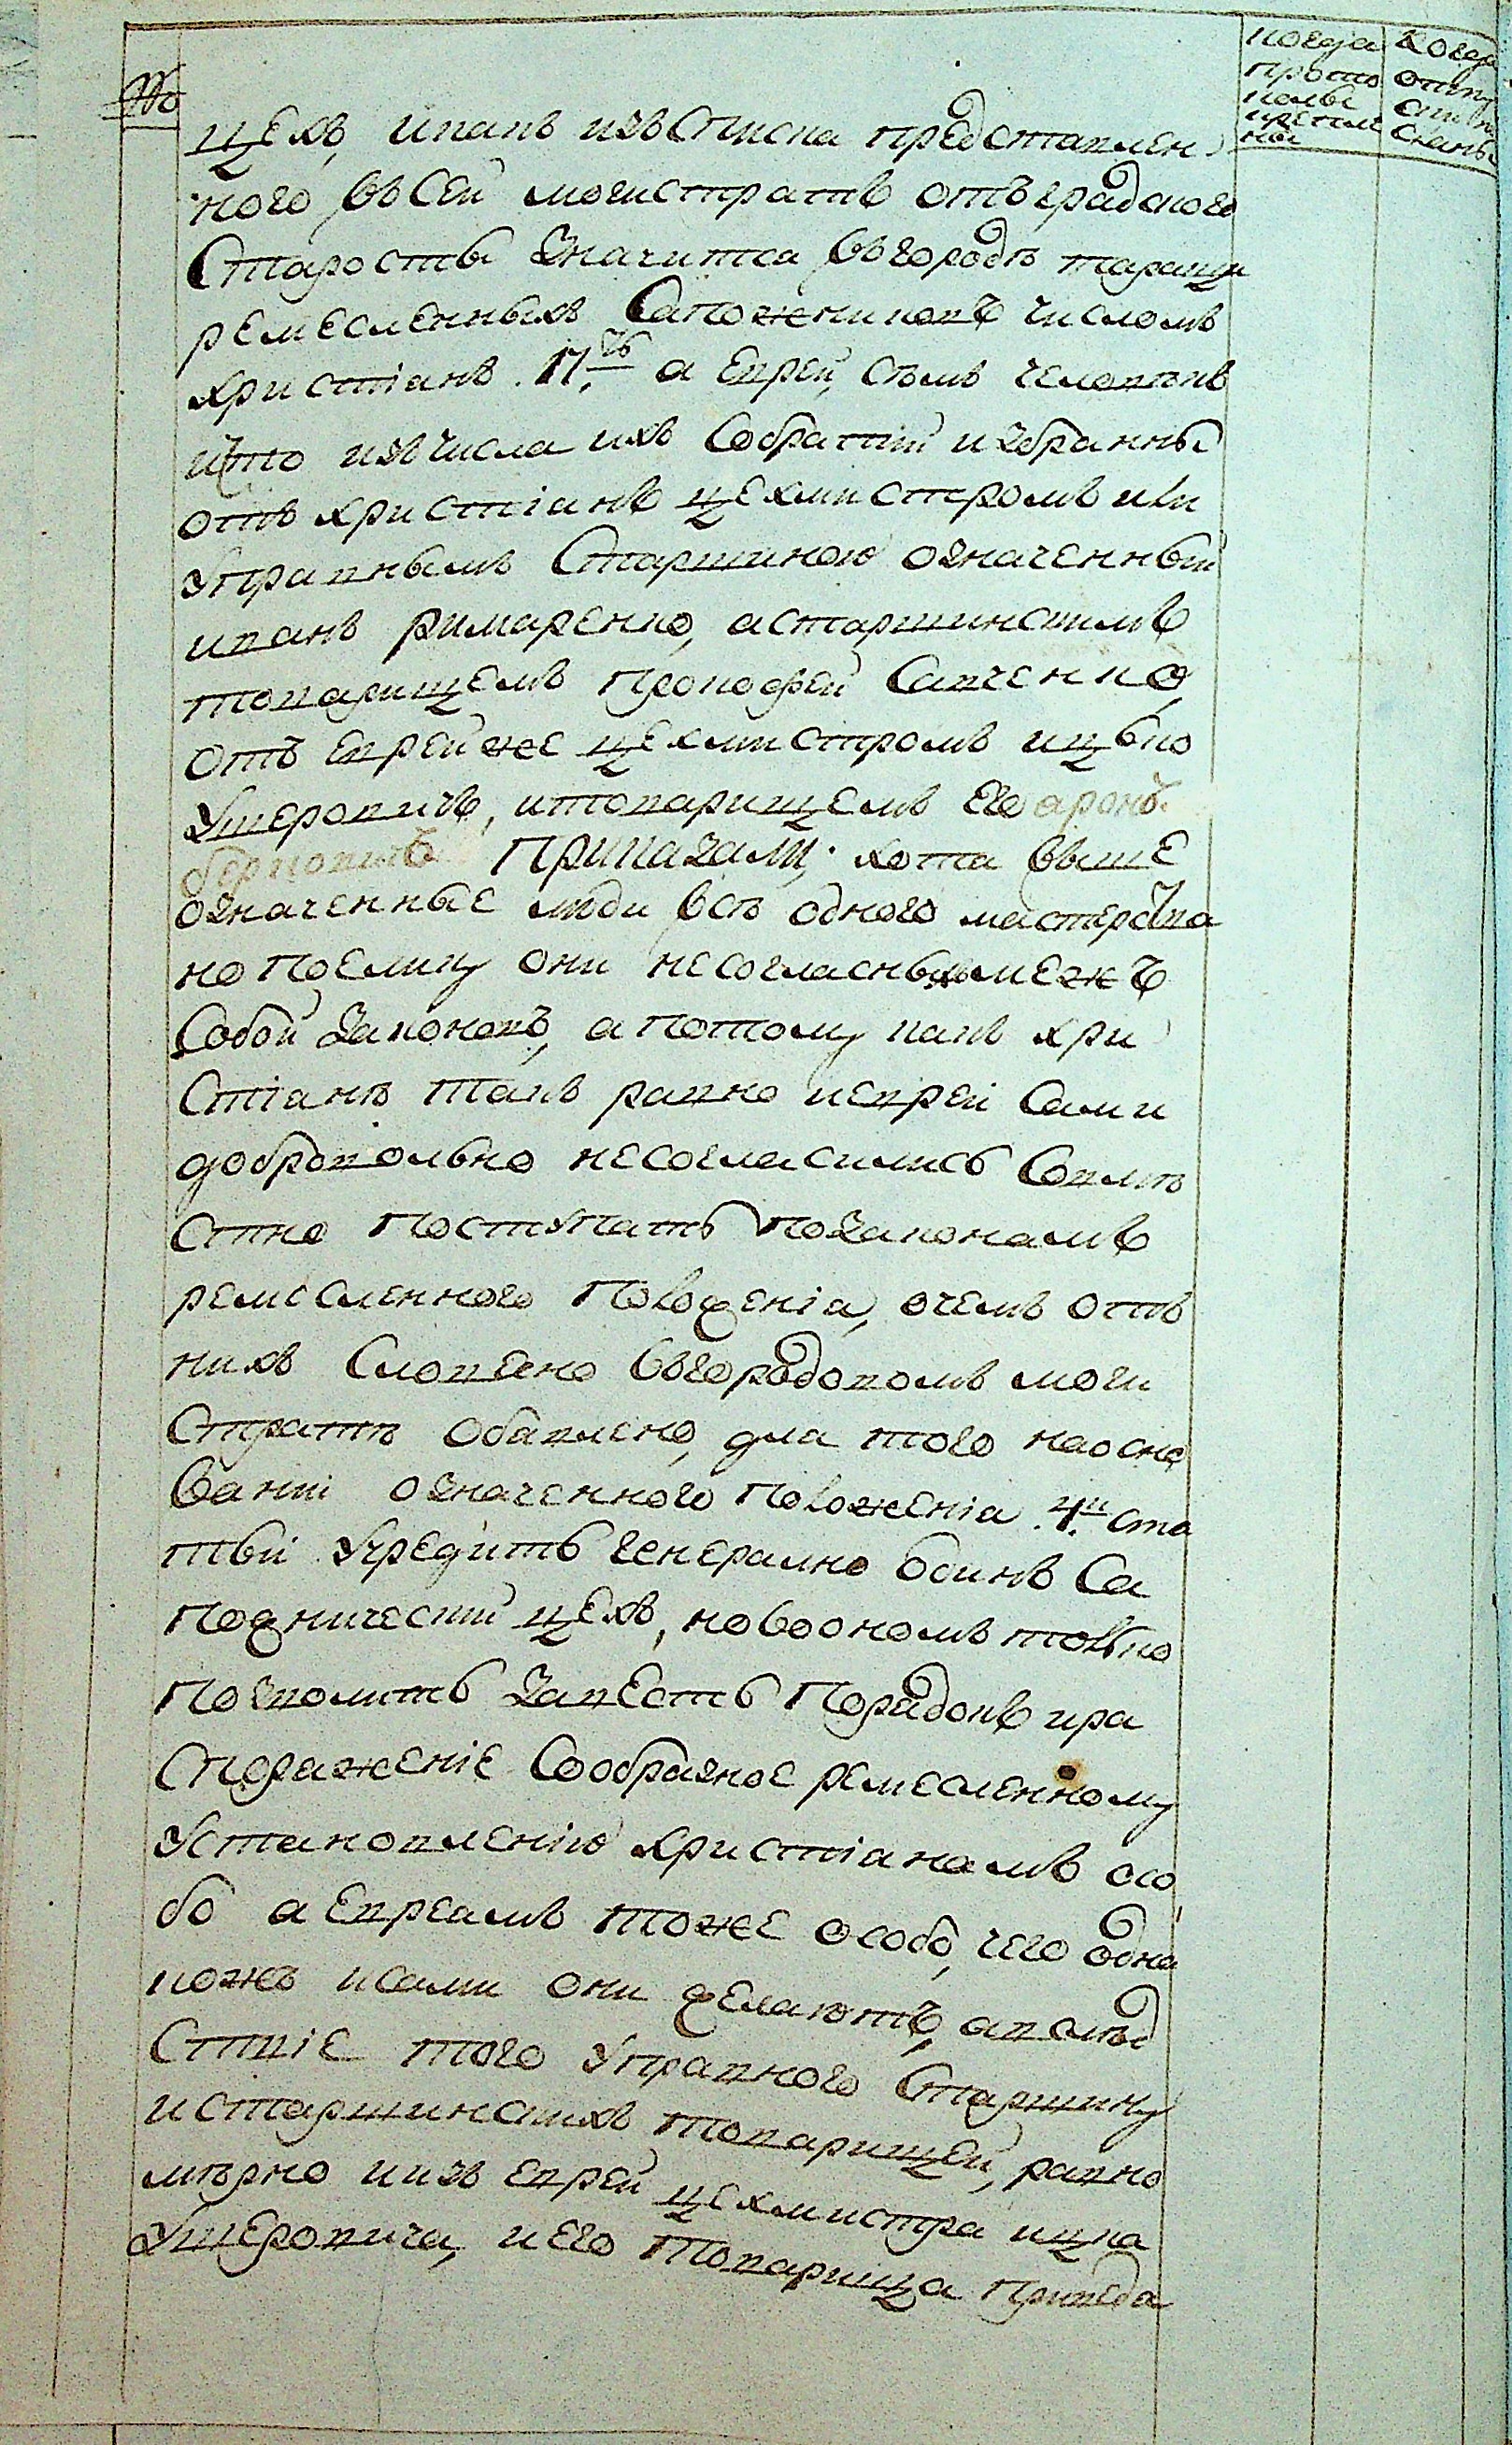 №
Когда прото колы крепле ны
Когда
цехъ, икакъ изъ списка представлен-
ного въ сей могистратъ отъ градского
Старосты Значитса въ городѣ таращи
ремесленныхъ Сапожниковъ числомъ
христіянъ 17.ть а Еврей, сѣмъ человѣкъ
ичто изъ числа ихъ Собратій избранны
отъ христіянъ цехмистромъ или
управнымъ Старшиною означенный
иванъ римаренко, а старшинскимъ
товарищемъ прокофей Савченко,
отъ Еврей же цехмистромъ ицько
Ушеровичъ, итоварищемъ Его аронъ
берковичъ ПРИКАЗАЛИ; хотя выше
означенные люди всѣ одного мастерства
но поелику они несогласны межъ
Собой Законовъ, а потому какъ хри
стіянъ такъ равно иеврей Сами
добровольно несогласились Совмѣ
стно поступать по Законамъ
ремесленного Положенія, очемъ отъ
нихъ Словесно въ городовомъ моги
стратѣ Объявлено, для того на осно
ваніи означенного положенія 4.й ста
тьи Учредить генерално Одинъ Са
пожническій цехъ, но во ономъ только
позволить Завесть Порядокъ и ра
споряженіе Сообразное ремесленному
Установленію христіянамъ осо
бо а Евреямъ тоже особо, чего одна
кожъ исами они желаютъ, а вслѣд
ствіе того Управного Старшину
и старшинскихъ товарищей, равно
мѣрно и изъ еврей цехмистра ицка
Ушеровича, и его товарища Приведа